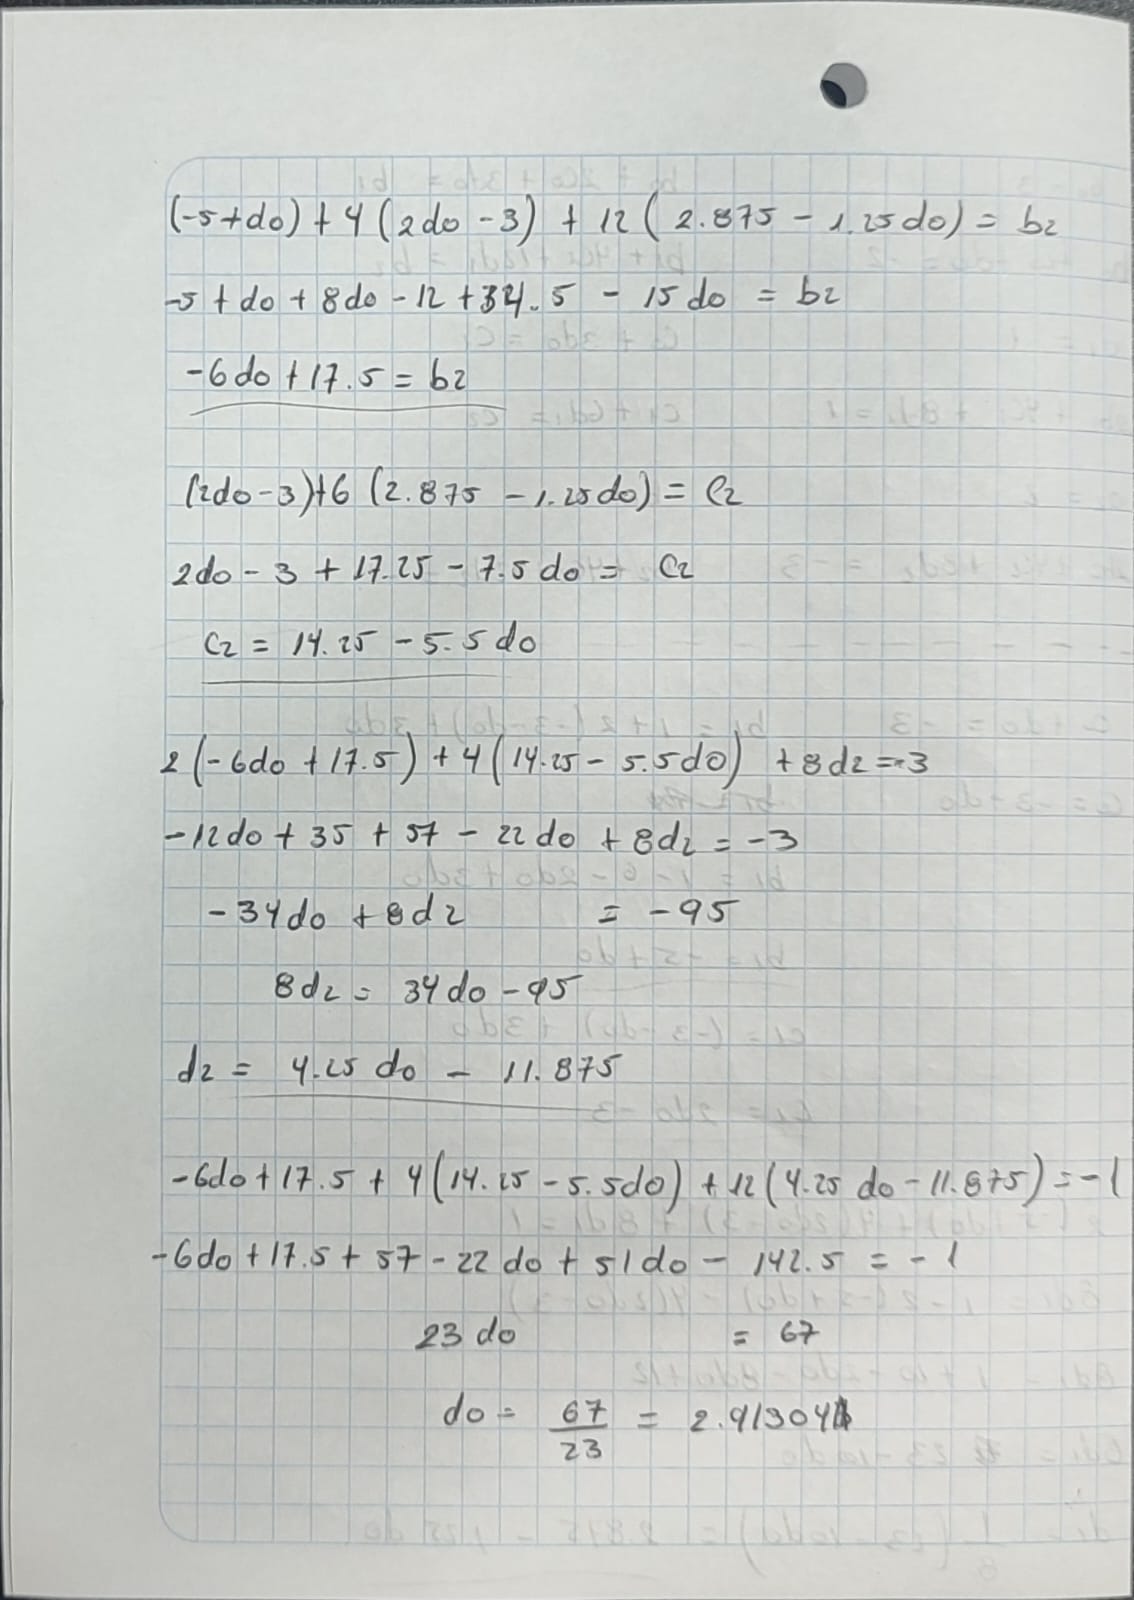 (-5+do) + 4 (2do -3) + 12 ( 2.875 - 1.25do) = b2
-5 + do + 8do - 12 + 34.5 - 15 do = b2
-6do + 17.5 = b2
(2do-3)+6 (2.875 - 1.25do) = C2
2do - 3 + 17.25 - 7.5 do = C2
C2 = 14.25 - 5.5 do
2 (-6do + 17.5) + 4 (14.25 - 5.5do) + 8d2 = -3
-12do + 35 + 57 - 22do + 8d2 = -3
-34do + 8d2 = -95
8d2 = 34do - 95
d2 = 4.25 do - 11.875
-6do + 17.5 + 4 (14.25 - 5.5do) + 12 (4.25 do - 11.875) = -1
-6do + 17.5 + 57 - 22 do + 51do - 142.5 = -1
23 do = 67
do = 67/23 = 2.91304